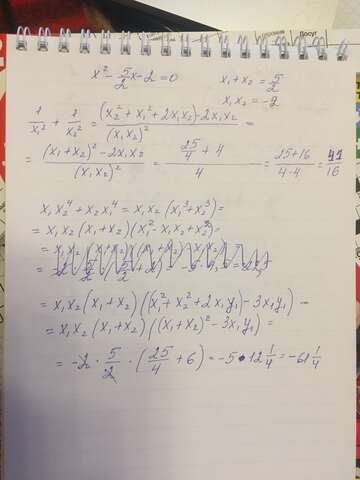 x² - 5/2 x - 2 = 0
x₁ + x₂ = 5/2
x₁x₂ = -2
1/x₁² + 1/x₂² = ((x₂² + x₁² + 2x₁x₂) - 2x₁x₂)/(x₁x₂)² =
= ((x₁ + x₂)² - 2x₁x₂)/(x₁x₂)² = (25/4 + 4)/4 = (25+16)/(4·4) = 41/16
x₁x₂⁴ + x₂x₁⁴ = x₁x₂(x₁³ + x₂³) =
= x₁x₂(x₁ + x₂)(x₁² - x₁x₂ + x₂²) =
= x₁x₂(x₁ + x₂)((x₁² + x₂² + 2x₁y₁) - 3x₁y₁) =
= x₁x₂(x₁ + x₂)((x₁ + x₂)² - 3x₁y₁) =
= -2 · 5/2 · (25/4 + 6) = -5 · 12 1/4 = -61 1/4